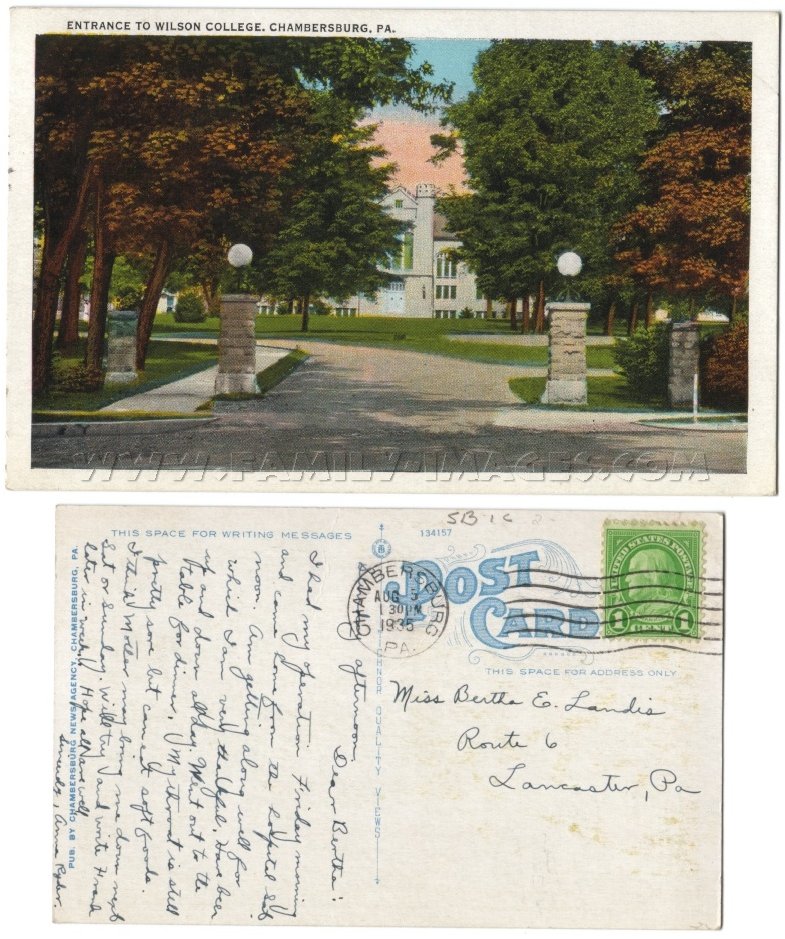 ENTRANCE TO WILSON COLLEGE, CHAMBERSBURG, PA.
WWW.FAMILY-IMAGES.COM
SB-16
THIS SPACE FOR WRITING MESSAGES
134157
POST
CARD
CHAMBERSBURG
AUG 5
1 30 PM
1935
PA.
UNITED STATES POSTAGE
1 CENT 1
THIS SPACE FOR ADDRESS ONLY
Miss Bertha E. Landis
Route 6
Lancaster, Pa
afternoon.
Dear Bertha:
I had my operation Friday morning
and came home from the hospital Sat
noon. Am getting along well for
which I am very thankful. Have been
up and down all day. Went out to the
table for dinner. My throat is still
pretty sore but can eat soft foods.
I think Mother may bring me down next
Sat or Sunday. Will try and write Frank
later in week. Hope all are well
Sincerely, Anna
PUB. BY CHAMBERSBURG NEWS AGENCY, CHAMBERSBURG, PA.
TICHNOR QUALITY VIEWS